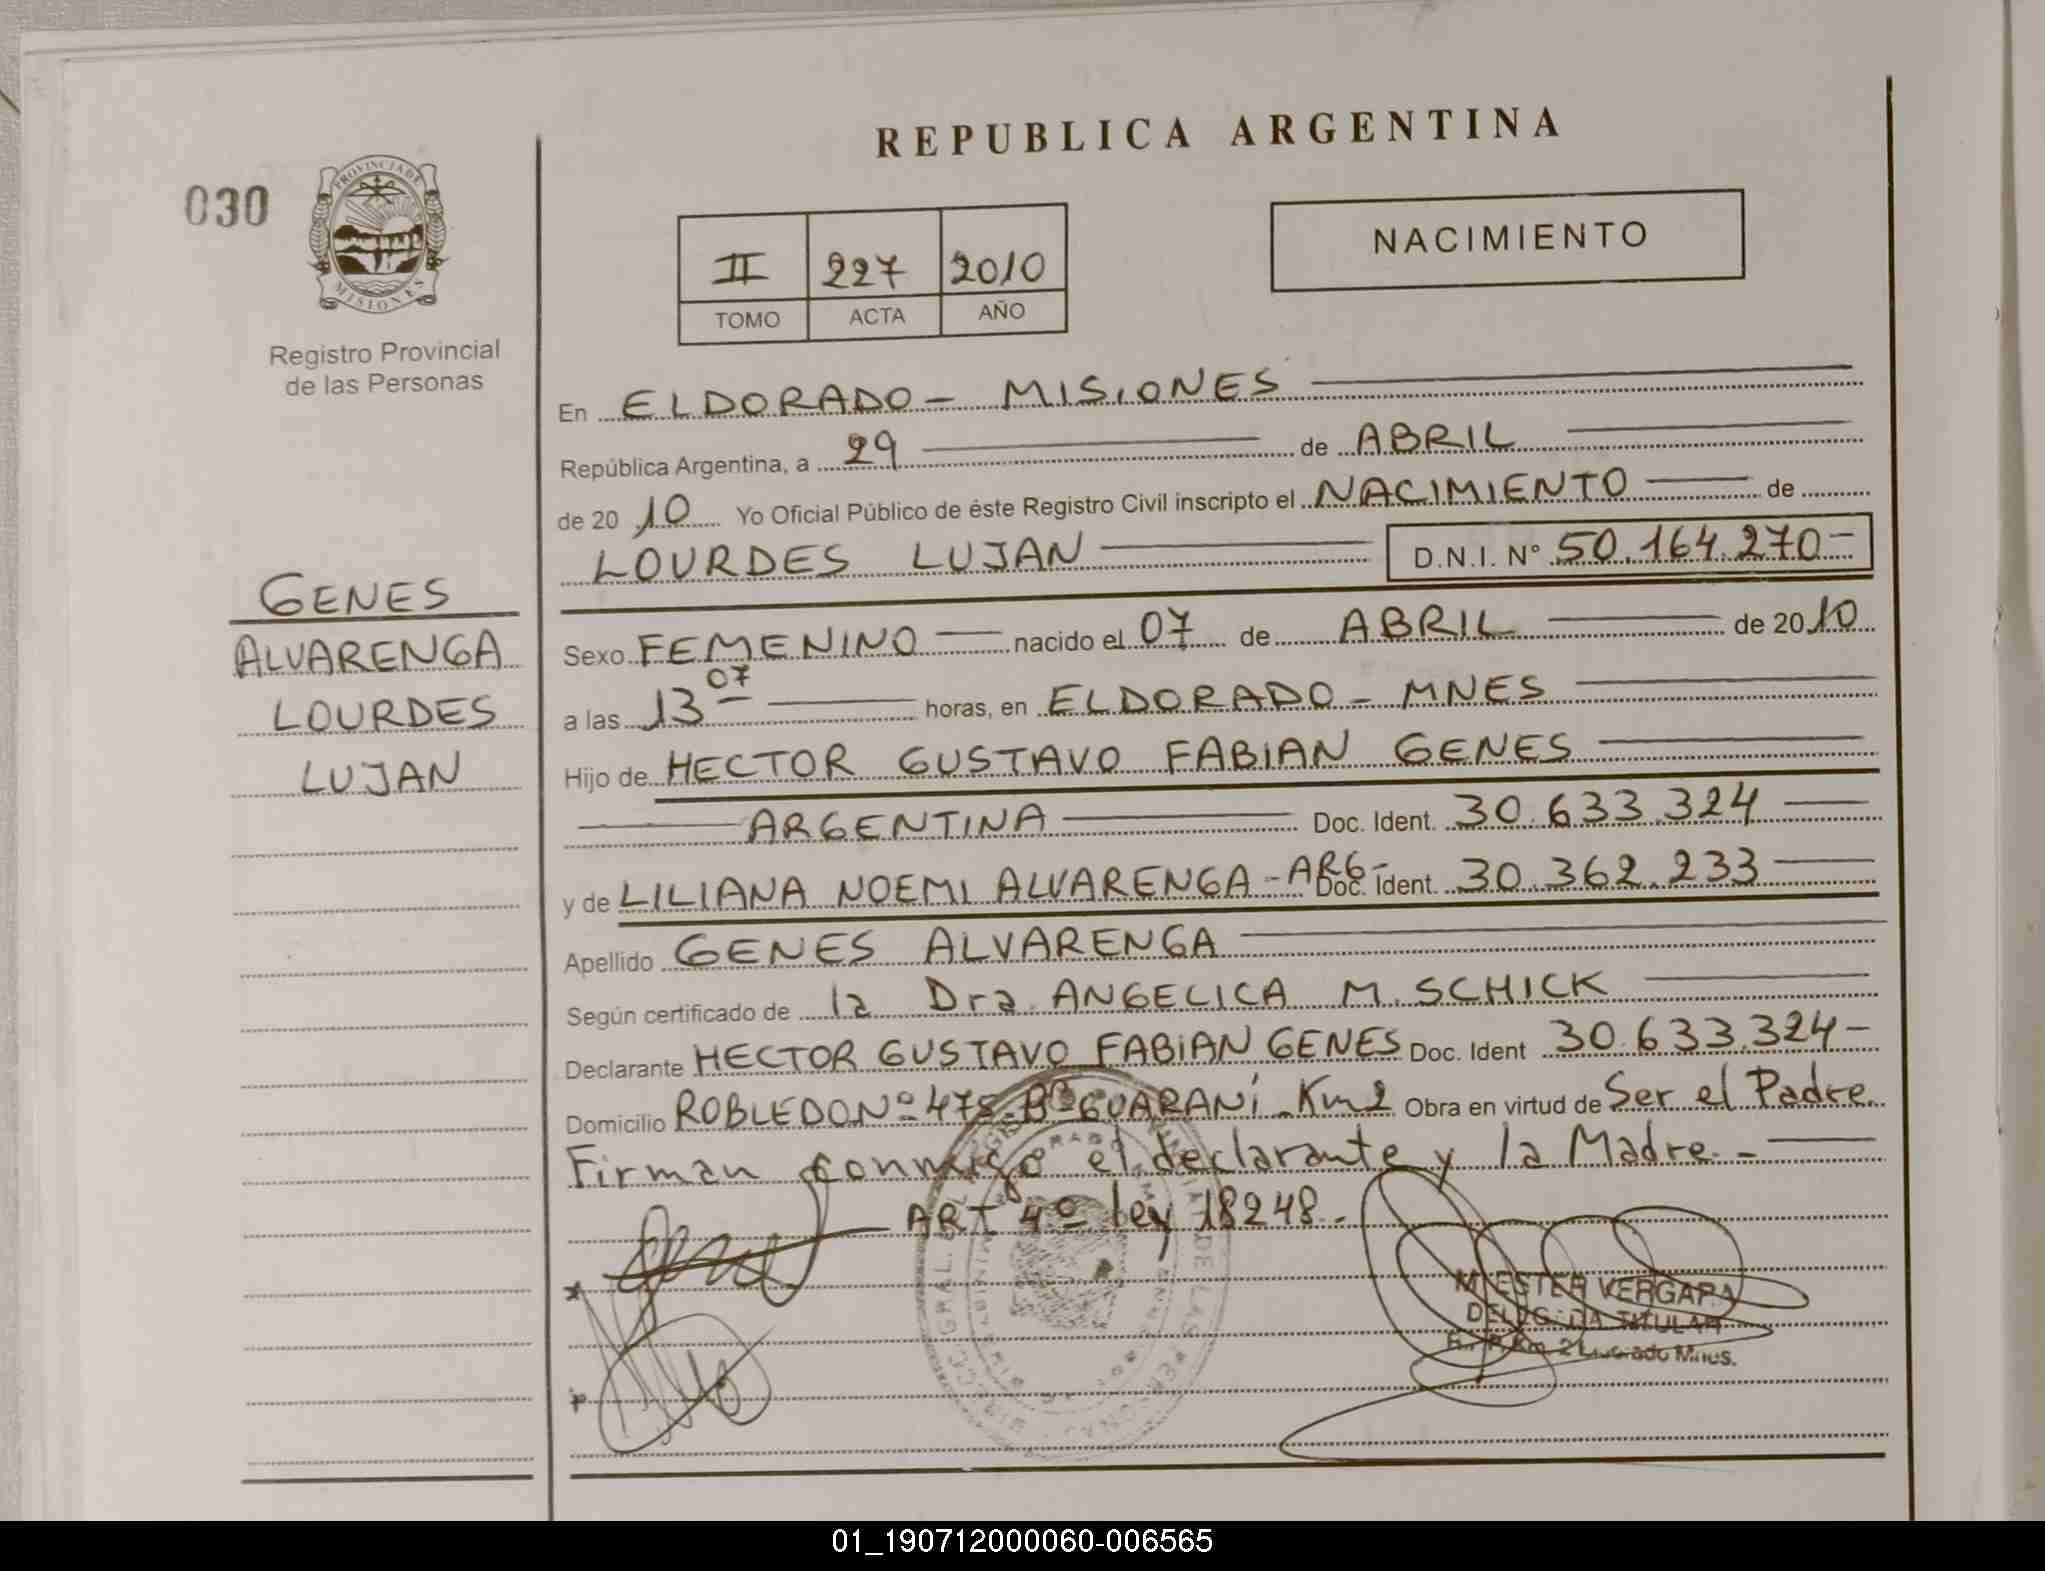 REPUBLICA ARGENTINA
030
PROVINCIA DE
MISIONES
Registro Provincial
de las Personas
NACIMIENTO
II 227 2010
TOMO ACTA AÑO
En ELDORADO - MISIONES
República Argentina, a 29 de ABRIL
de 20 10 Yo Oficial Público de éste Registro Civil inscripto el NACIMIENTO de
LOURDES LUJAN D.N.I. Nº 50.164.270-
GENES
ALVARENGA
LOURDES
LUJAN
Sexo FEMENINO nacido el 07 de ABRIL de 2010
a las 13 07 horas, en ELDORADO - MNES
Hijo de HECTOR GUSTAVO FABIAN GENES
ARGENTINA Doc. Ident. 30.633.324
y de LILIANA NOEMI ALVARENGA - ARG- Doc. Ident. 30.362.233
Apellido GENES ALVARENGA
Según certificado de la Dra. ANGELICA M. SCHICK
Declarante HECTOR GUSTAVO FABIAN GENES Doc. Ident 30.633.324-
Domicilio ROBLEDO Nº 475-Bº GUARANÍ - Km2 Obra en virtud de Ser el Padre
Firman conmigo el declarante y la Madre.-
ART 4º ley 18248.-
M. ESTER VERGARA
DELEGADA TITULAR
Km 2 Eldorado Mnes.
01_190712000060-006565